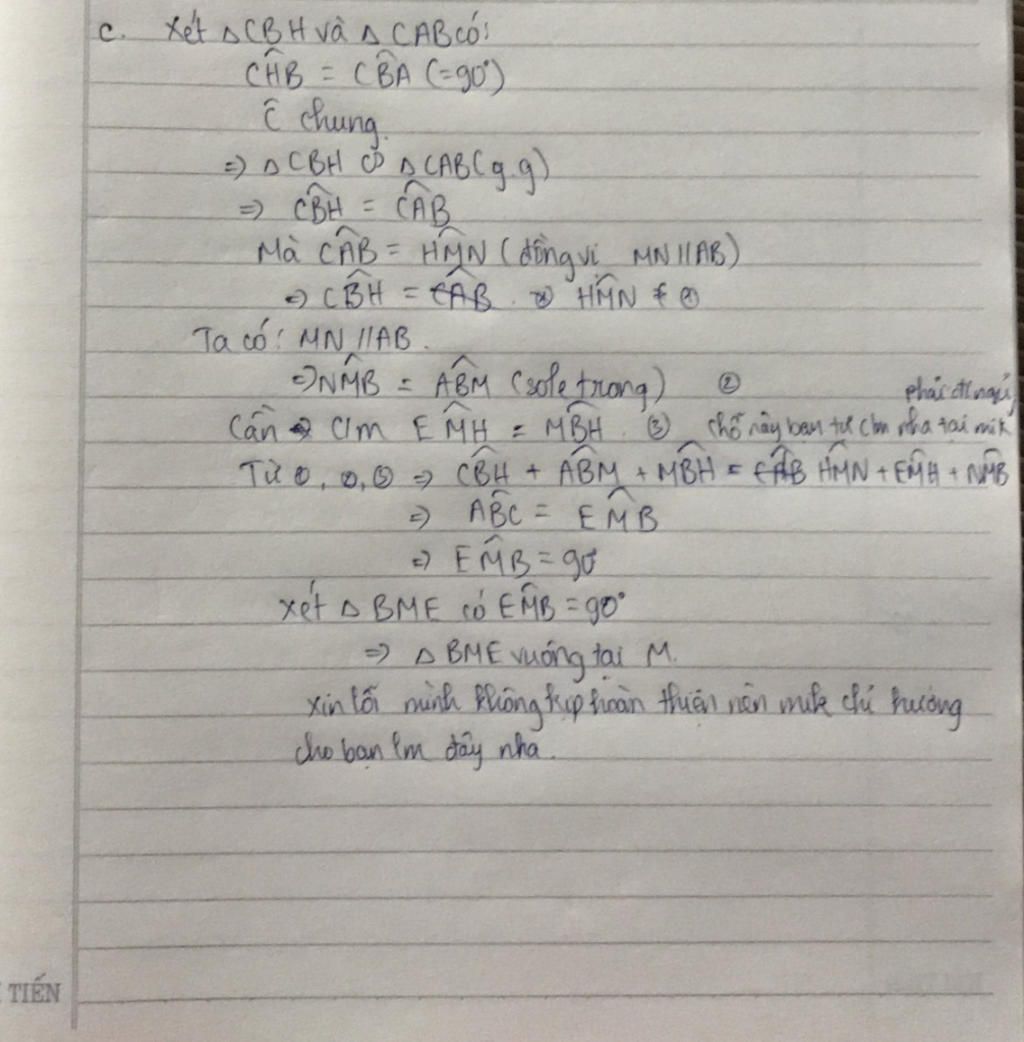 c. Xét ΔCBH và ΔCAB có:
CĤB = CB̂A (=90°)
Ĉ chung.
=> ΔCBH ∽ ΔCAB (g.g)
=> CB̂H = CÂB
Mà CÂB = HM̂N (đồng vị MN//AB)
=> CB̂H = HM̂N ①
Ta có: MN //AB.
=> NM̂B = AB̂M (sole trong) ②
phải đi ngủ
Cần c/m EM̂H = MB̂H. ③ chỗ này bạn tự c/m nha tại mik
Từ ①, ②, ③ => CB̂H + AB̂M + MB̂H = HM̂N + EM̂H + NM̂B
=> AB̂C = EM̂B
=> EM̂B = 90°
Xét Δ BME có EM̂B = 90°
=> Δ BME vuông tại M.
xin lỗi mình không kịp hoàn thiện nên mik chỉ hướng
cho bạn lm đây nha.
TIẾN